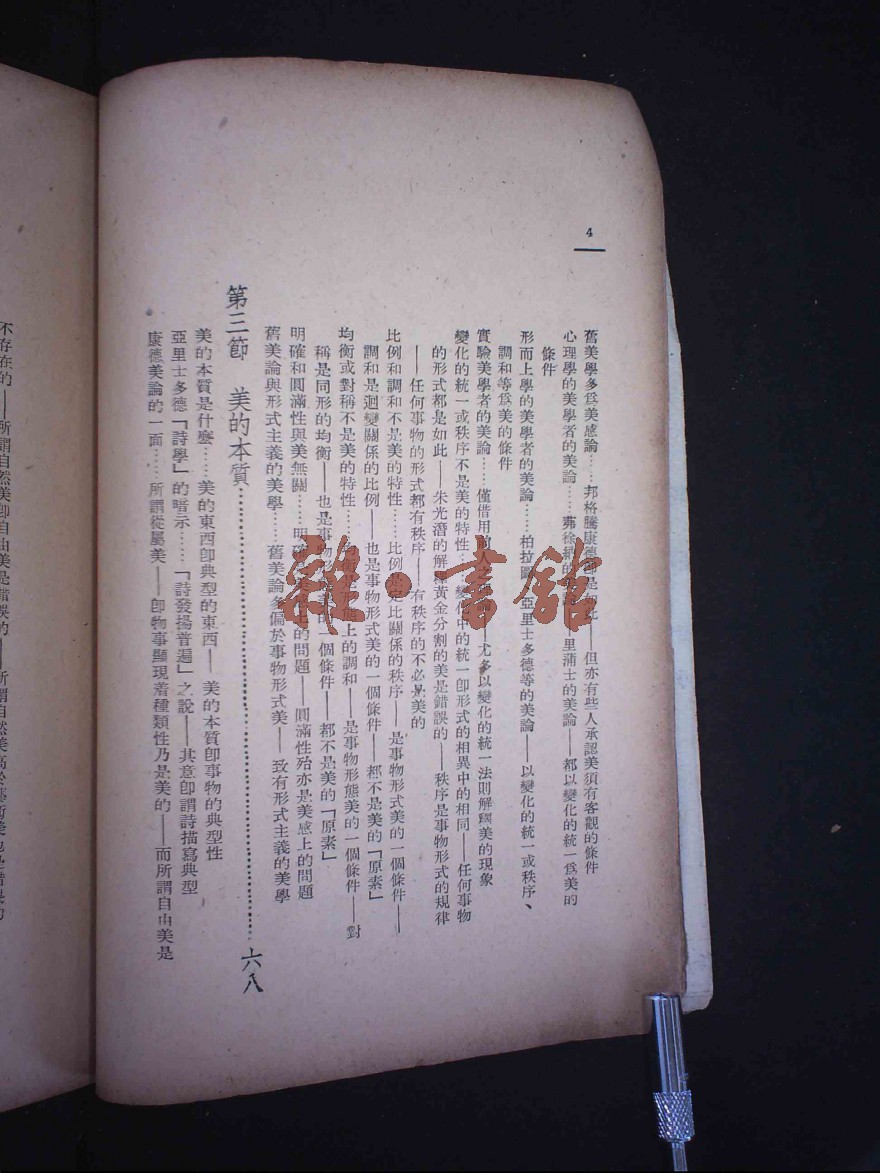 4
舊美學多爲美感論……邦格騰康德都是如此——但亦有些人承認美須有客觀的條件
心理學的美學者的美論……弗徐納的 里蒲士的美論——都以變化的統一爲美的
條件
形而上學的美學者的美論……柏拉圖 亞里士多德等的美論——以變化的統一或秩序、
調和等爲美的條件
實驗美學者的美論……僅借用前人 ——尤多以變化的統一法則解釋美的現象
變化的統一或秩序不是美的特性…… 變化中的統一卽形式的相異中的相同——任何事物
的形式都是如此——朱光潛的解釋黃金分割的美是錯誤的——秩序是事物形式的規律
——任何事物的形式都有秩序——有秩序的不必是美的
比例和調和不是美的特性……比例是定比關係的秩序——是事物形式美的一個條件——
調和是迥變關係的比例——也是事物形式美的一個條件——都不是美的「原素」
均衡或對稱不是美的特性…… 均衡是形態上的調和——是事物形態美的一個條件——對
稱是同形的均衡——也是事物形 一個條件——都不是美的「原素」
明確和圓滿性與美無關……明確 上的問題——圓滿性殆亦是美感上的問題
舊美論與形式主義的美學……舊美論多偏於事物形式美——致有形式主義的美學
第三節 美的本質……六八
美的本質是什麽……美的東西卽典型的東西——美的本質卽事物的典型性
亞里士多德「詩學」的暗示……「詩發揚普遍」之說——其意卽謂詩描寫典型
康德美論的一面……所謂從屬美——卽物事顯現着種類性乃是美的——而所謂自由美是
不存在的——所謂自然美卽自由美是錯誤的——所謂自然美高於藝術美也是錯誤的
雜·書館